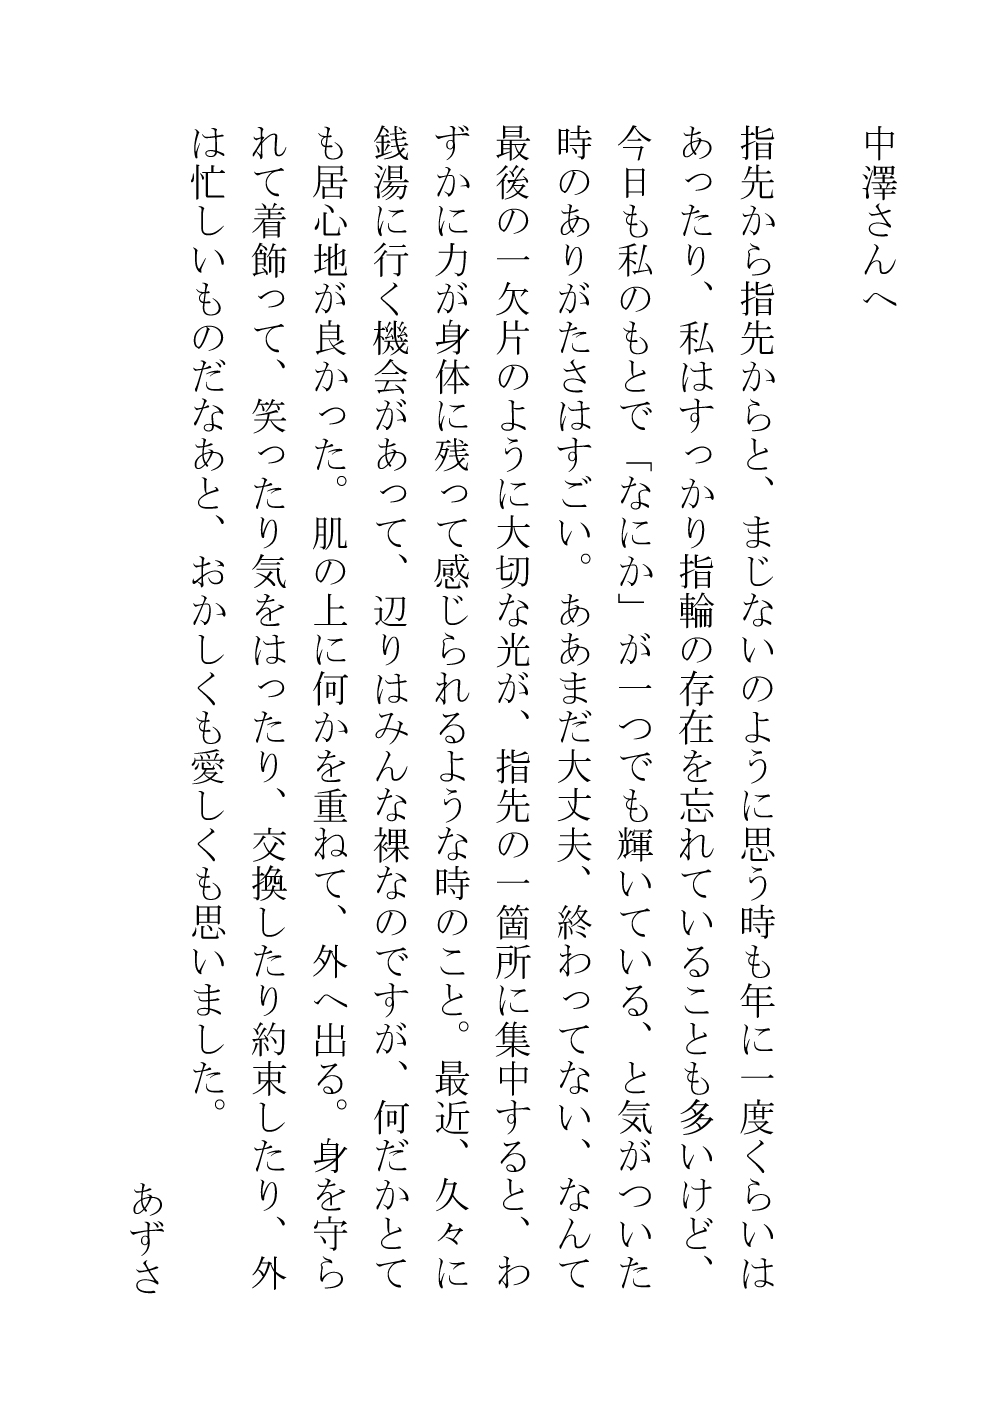 中澤さんへ
指先から指先からと、まじないのように思う時も年に一度くらいは
あったり、私はすっかり指輪の存在を忘れていることも多いけど、
今日も私のもとで「なにか」が一つでも輝いている、と気がついた
時のありがたさはすごい。ああまだ大丈夫、終わってない、なんて
最後の一欠片のように大切な光が、指先の一箇所に集中すると、わ
ずかに力が身体に残って感じられるような時のこと。最近、久々に
銭湯に行く機会があって、辺りはみんな裸なのですが、何だかとて
も居心地が良かった。肌の上に何かを重ねて、外へ出る。身を守ら
れて着飾って、笑ったり気をはったり、交換したり約束したり、外
は忙しいものだなあと、おかしくも愛しくも思いました。
あずさ